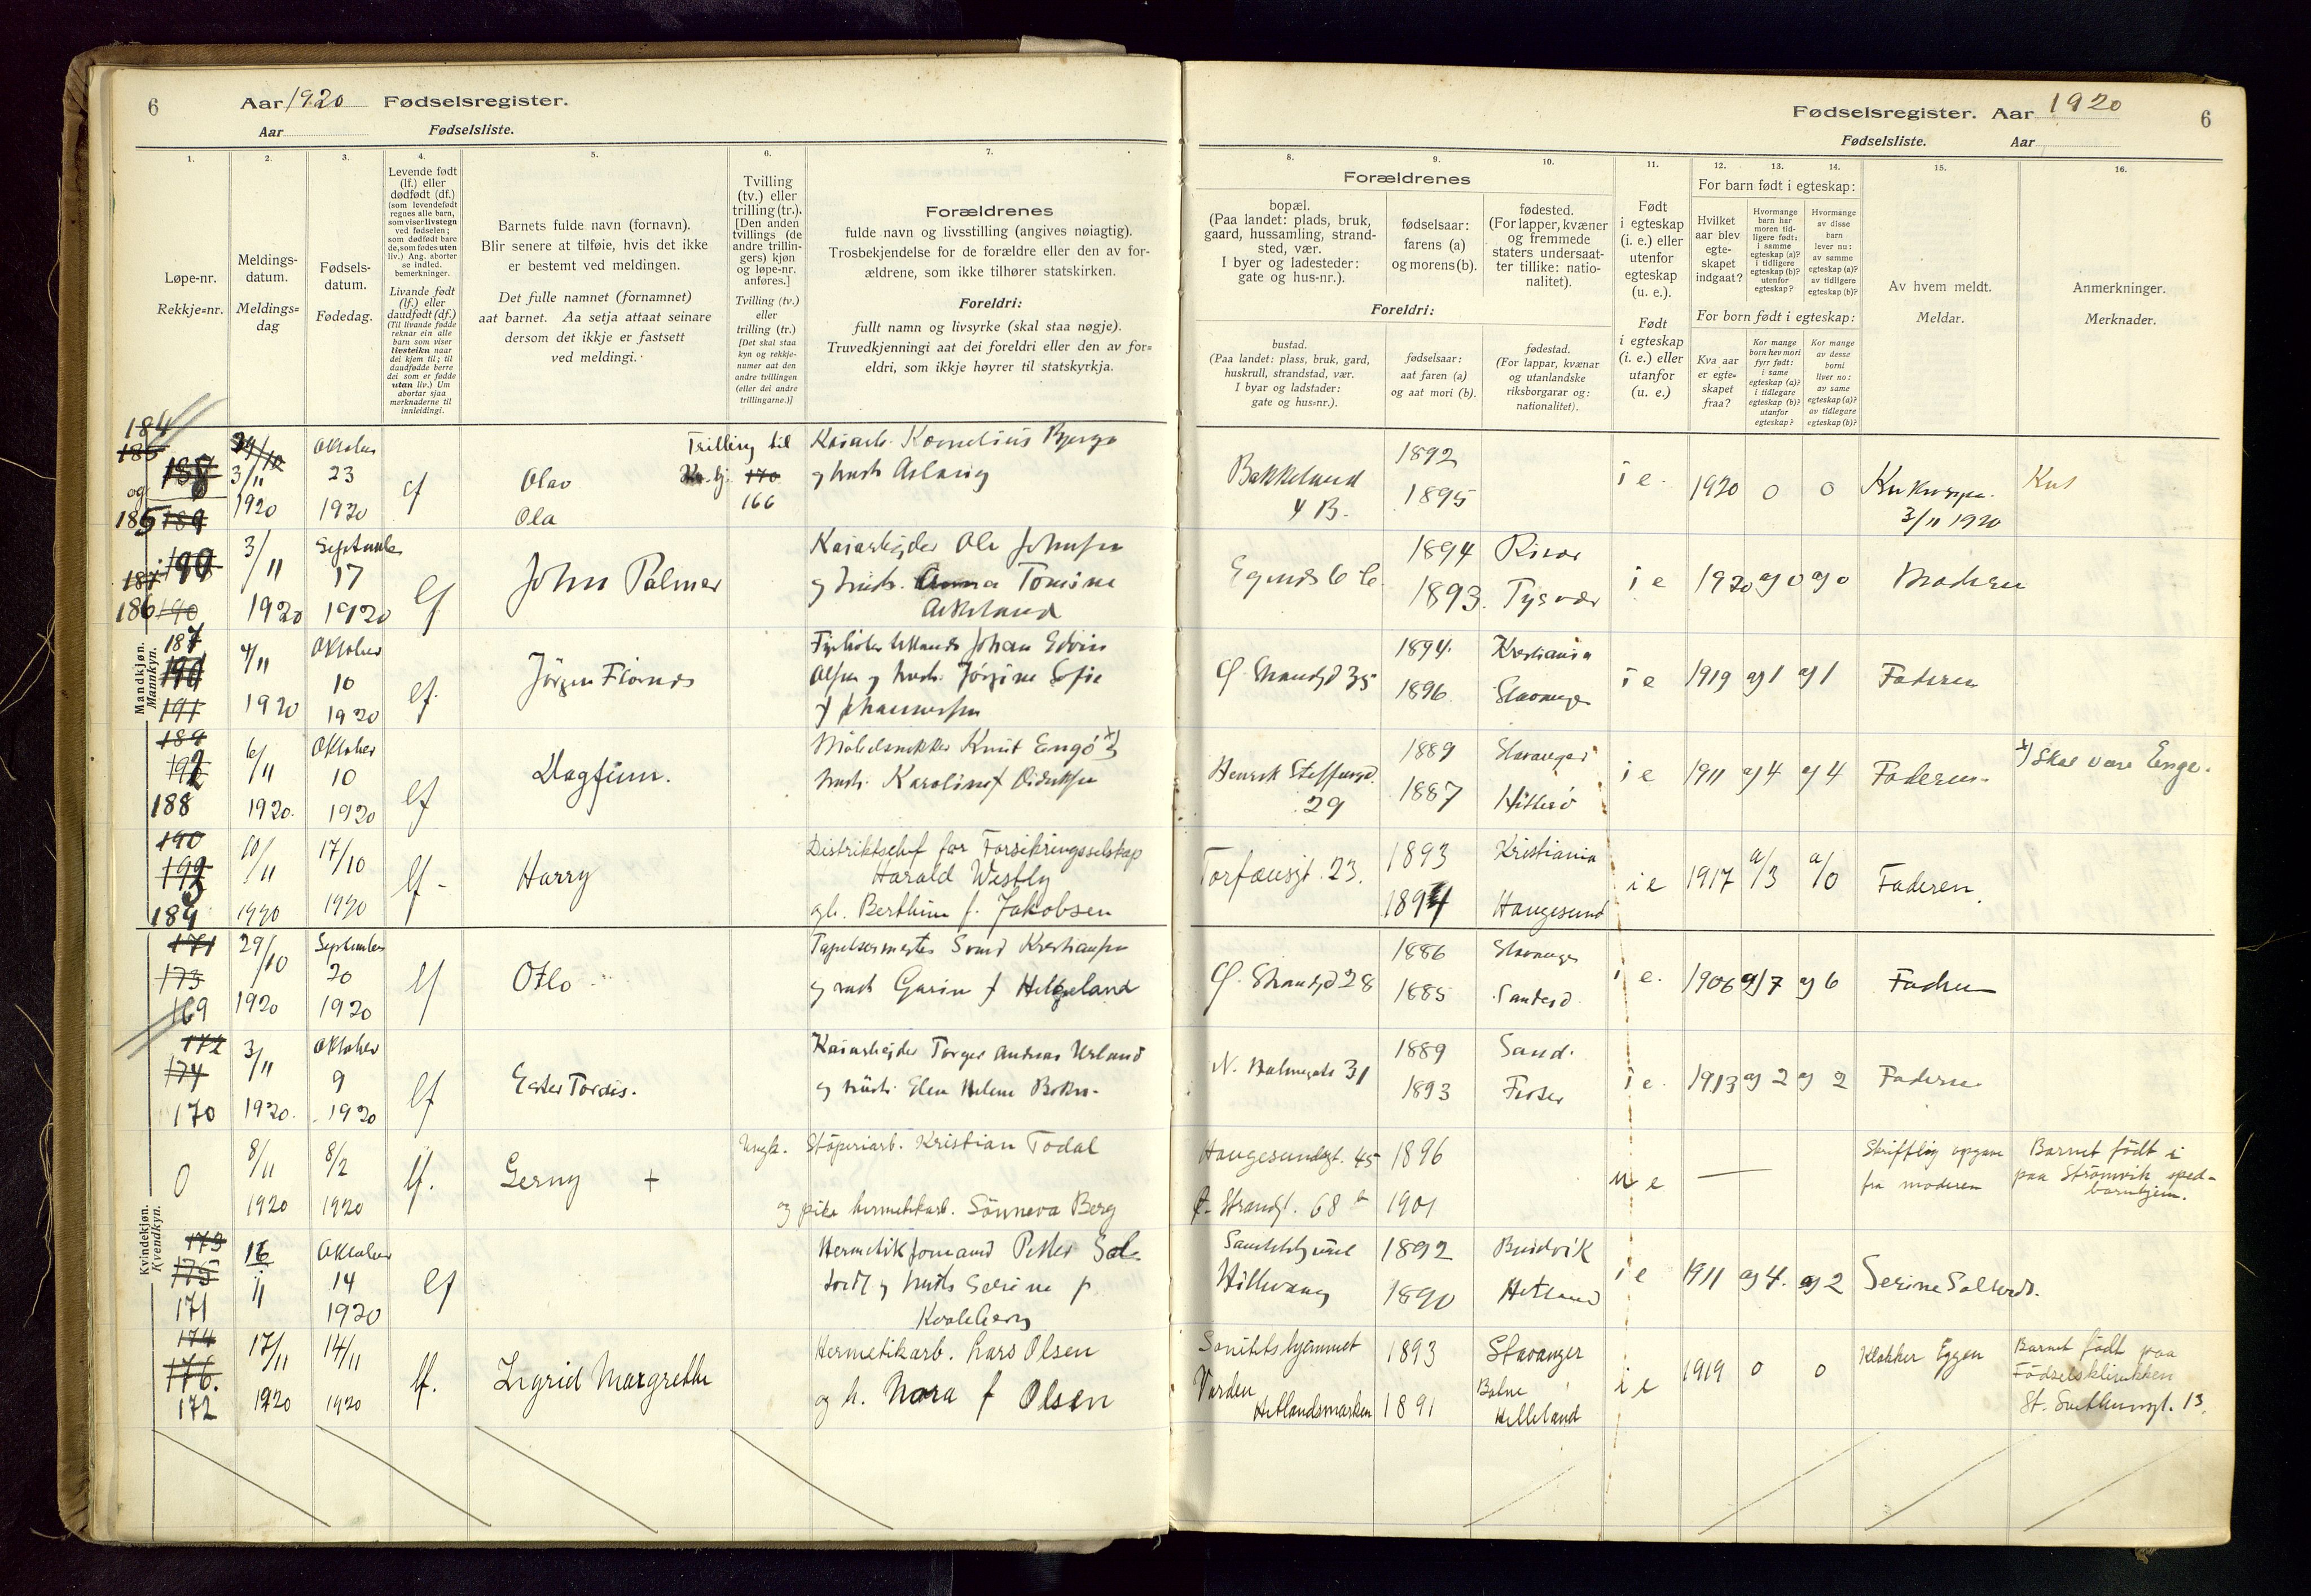 6
Aar 1920 Fødselsregister.
Aar Fødselsliste.
1.
Løpe-nr.
Rekkje=nr.
2.
Meldings-
datum.
Meldings=
dag
3.
Fødsels-
datum.
Fødedag.
4.
Levende født
(lf.) eller
dødfødt (df.)
(som levendefødt
regnes alle barn,
som viser livstegn
ved fødselen;
som dødfødt bare
de, som fødes uten
liv.) Ang. aborter
se indled.
bemerkninger.
Livande født
(lf.) eller
daudfødt (df.)
(Til livande fødde
reknar ein alle
barn som viser
livsteikn naar
dei kjem til; til
daudfødde berre
dei som er fødde
utan liv.) Um
abortar sjaa
merknaderne til
innleidingi.
5.
Barnets fulde navn (fornavn).
Blir senere at tilføie, hvis det ikke
er bestemt ved meldingen.
Det fulle namnet (fornamnet)
aat barnet. Aa setja attaat seinare
dersom det ikkje er fastsett
ved meldingi.
6.
Tvilling
(tv.) eller
trilling (tr.).
[Den anden
tvillings (de
andre trillin-
gers) kjøn
og løpe-nr.
anføres.]
Tvilling (tv.)
eller
trilling (tr.)
[Det skal staa
kyn og rekkje-
numer aat den
andre tvillingen
(eller dei andre
trillingarne.)]
7.
Forældrenes
fulde navn og livsstilling (angives nøiagtig).
Trosbekjendelse for de forældre eller den av for-
ældrene, som ikke tilhører statskirken.
Foreldri:
fullt namn og livsyrke (skal staa nøgje).
Truvedkjenningi aat dei foreldri eller den av for=
eldri, som ikkje høyrer til statskyrkja.
Fødselsregister. Aar 1920
6
Fødselsliste. Aar
8.
Forældrenes
bopæl.
(Paa landet: plads, bruk,
gaard, hussamling, strand-
sted, vær.
I byer og ladesteder:
gate og hus-nr.).
9.
fødselsaar:
farens (a)
og morens (b).
10.
fødested.
(For lapper, kvæner
og fremmede
staters undersaat-
ter tillike: natio-
nalitet).
Foreldri:
bustad.
(Paa landet: plass, bruk, gard,
huskrull, strandstad, vær.
I byar og ladstader:
gate og hus=nr.).
fødselsaar:
aat faren (a)
og aat mori (b).
fødestad.
(For lappar, kvænar
og utanlandske
riksborgarar og:
nationalitet).
11.
Født
i egteskap
(i. e.) eller
utenfor
egteskap
(u. e.).
Født
i egteskap
(i. e.) eller
utanfor
(u. e.)
12. 13. 14.
For barn født i egteskap:
Hvilket
aar blev
egte-
skapet
indgaat?
Hvormange
barn har
moren tid-
ligere født:
i samme
egteskap (a)?
i tidligere
egteskap (b)?
utenfor
egteskap?
Hvormange
av disse
barn
lever nu:
av samme
egteskap (a)?
av tidligere
egteskap (b)?
For born født i egteskap:
Kva aar
er egte=
skapet
fraa?
Kor mange
born hev mori
fyrr født:
i same
egteskap (a)?
i tidlegare
egteskap (b)?
utanfor
egteskap?
Kor mange
av desse
borni
liver no:
av same
egteskap (a)?
av tidlegare
egteskap (b)?
15.
Av hvem meldt.
Meldar.
16.
Anmerkninger.
Merknader.
Mandkjøn.
Mannkyn.
184
185
og
185
3/11
1920
Oktober
23
1920
lf
Olav
Ola
Trilling til
170
166
Kornelius
og hustr. Aslaug
Bakkeland
4 B.
1892
1895
i e. 1920 0 0
3/11 1920
186
3/11
1920
September
17
1920
lf
John Palmer
Kaiarbejder Ole Johnsen
og hustr. Anna Tomine
Askeland
1894 Risør
1893. Tysvær
i e 1920 a) 0 a) 0 Moderen
187
191
4/11
1920
Oktober
10
1920
lf.
Jørgen Fionds
Johan Edvin
Olsen og hustr. Jörgine Sofie
f Johannessen
Ø. Strandgd 35
1894. Kristiania
1896 Stavanger
i e 1919 a) 1 a) 1 Faderen
189
192
188
6/11
1920.
Oktober
10
1920
lf
Dagfinn.
Möbelsnekker Knut Engö x) og
hustr. Karoline f Didriksen
Henrik Steffensgd.
29
1889 Stavanger
1887 Hitterö
i e 1911 a) 4 a) 4 Faderen
x) Skal være Enge.
190
192
189
10/11
1920
17/10
1920
lf -
Harry
Distriktschef for Forsikringsselskap
Harald Westly
og h. Berthine f. Jakobsen
Torfæusgt. 23.
1893 Kristiania
1894 Haugesund
i e 1917 a/3 a/0 Faderen.
171
173
169
29/10
1920
September
20
1920
lf
Otlo
Kristiansen
og hustr Garine f Helgeland
Ø. Strandgd 28
1886 Stavanger
1885 Sandeid
i e. 1906 a) 7 a) 6 Faderen
172
174
170
3/11
1920.
Oktober
9
1920
lf
Ester Tordis.
Kaiarbejder Torger Andreas Urland
og hustr. Elen Helene
N. Holmegate 31
1889 Sand.
1893
i e. 1913 a) 2 a) 2 Faderen
Kvindekjøn.
Kvendkyn.
0
8/11
1920
8/2
1920
lf.
Gerny +
Ungk. Stöperiarb. Kristian Todal
og pike hermetikarb. Sönneva Berg
Haugesundsgt. 45
Ø. Strandgt. 68 a
1896
1901
u e —
Skriftlig opgave
fra moderen
Barnet födt i
paa Strömvik sped-
barnhjem.
173
175
171
16
11
Oktober
14
1920
lf
Hermetikformand Petter Sol-
tvedt og hustr Serine f
Kvaleberg
Hillevaag
1892
1890 Hetland
i e 1911 a) 4. a) 2 Serine Soltvedt.
174
176.
172
17/11
1920
14/11
1920
lf.
Ingrid Margrethe
Hermetikarb. Lars Olsen
og h. Nora f Olsen
Sanitetshjemmet
Varden
Hetlandsmarken
1893 Stavanger
1891 Helleland
i e 1919 0 0 Klokker Eggen
Barnet födt paa
Födselsklinikken
St. Svithunsgt. 13.